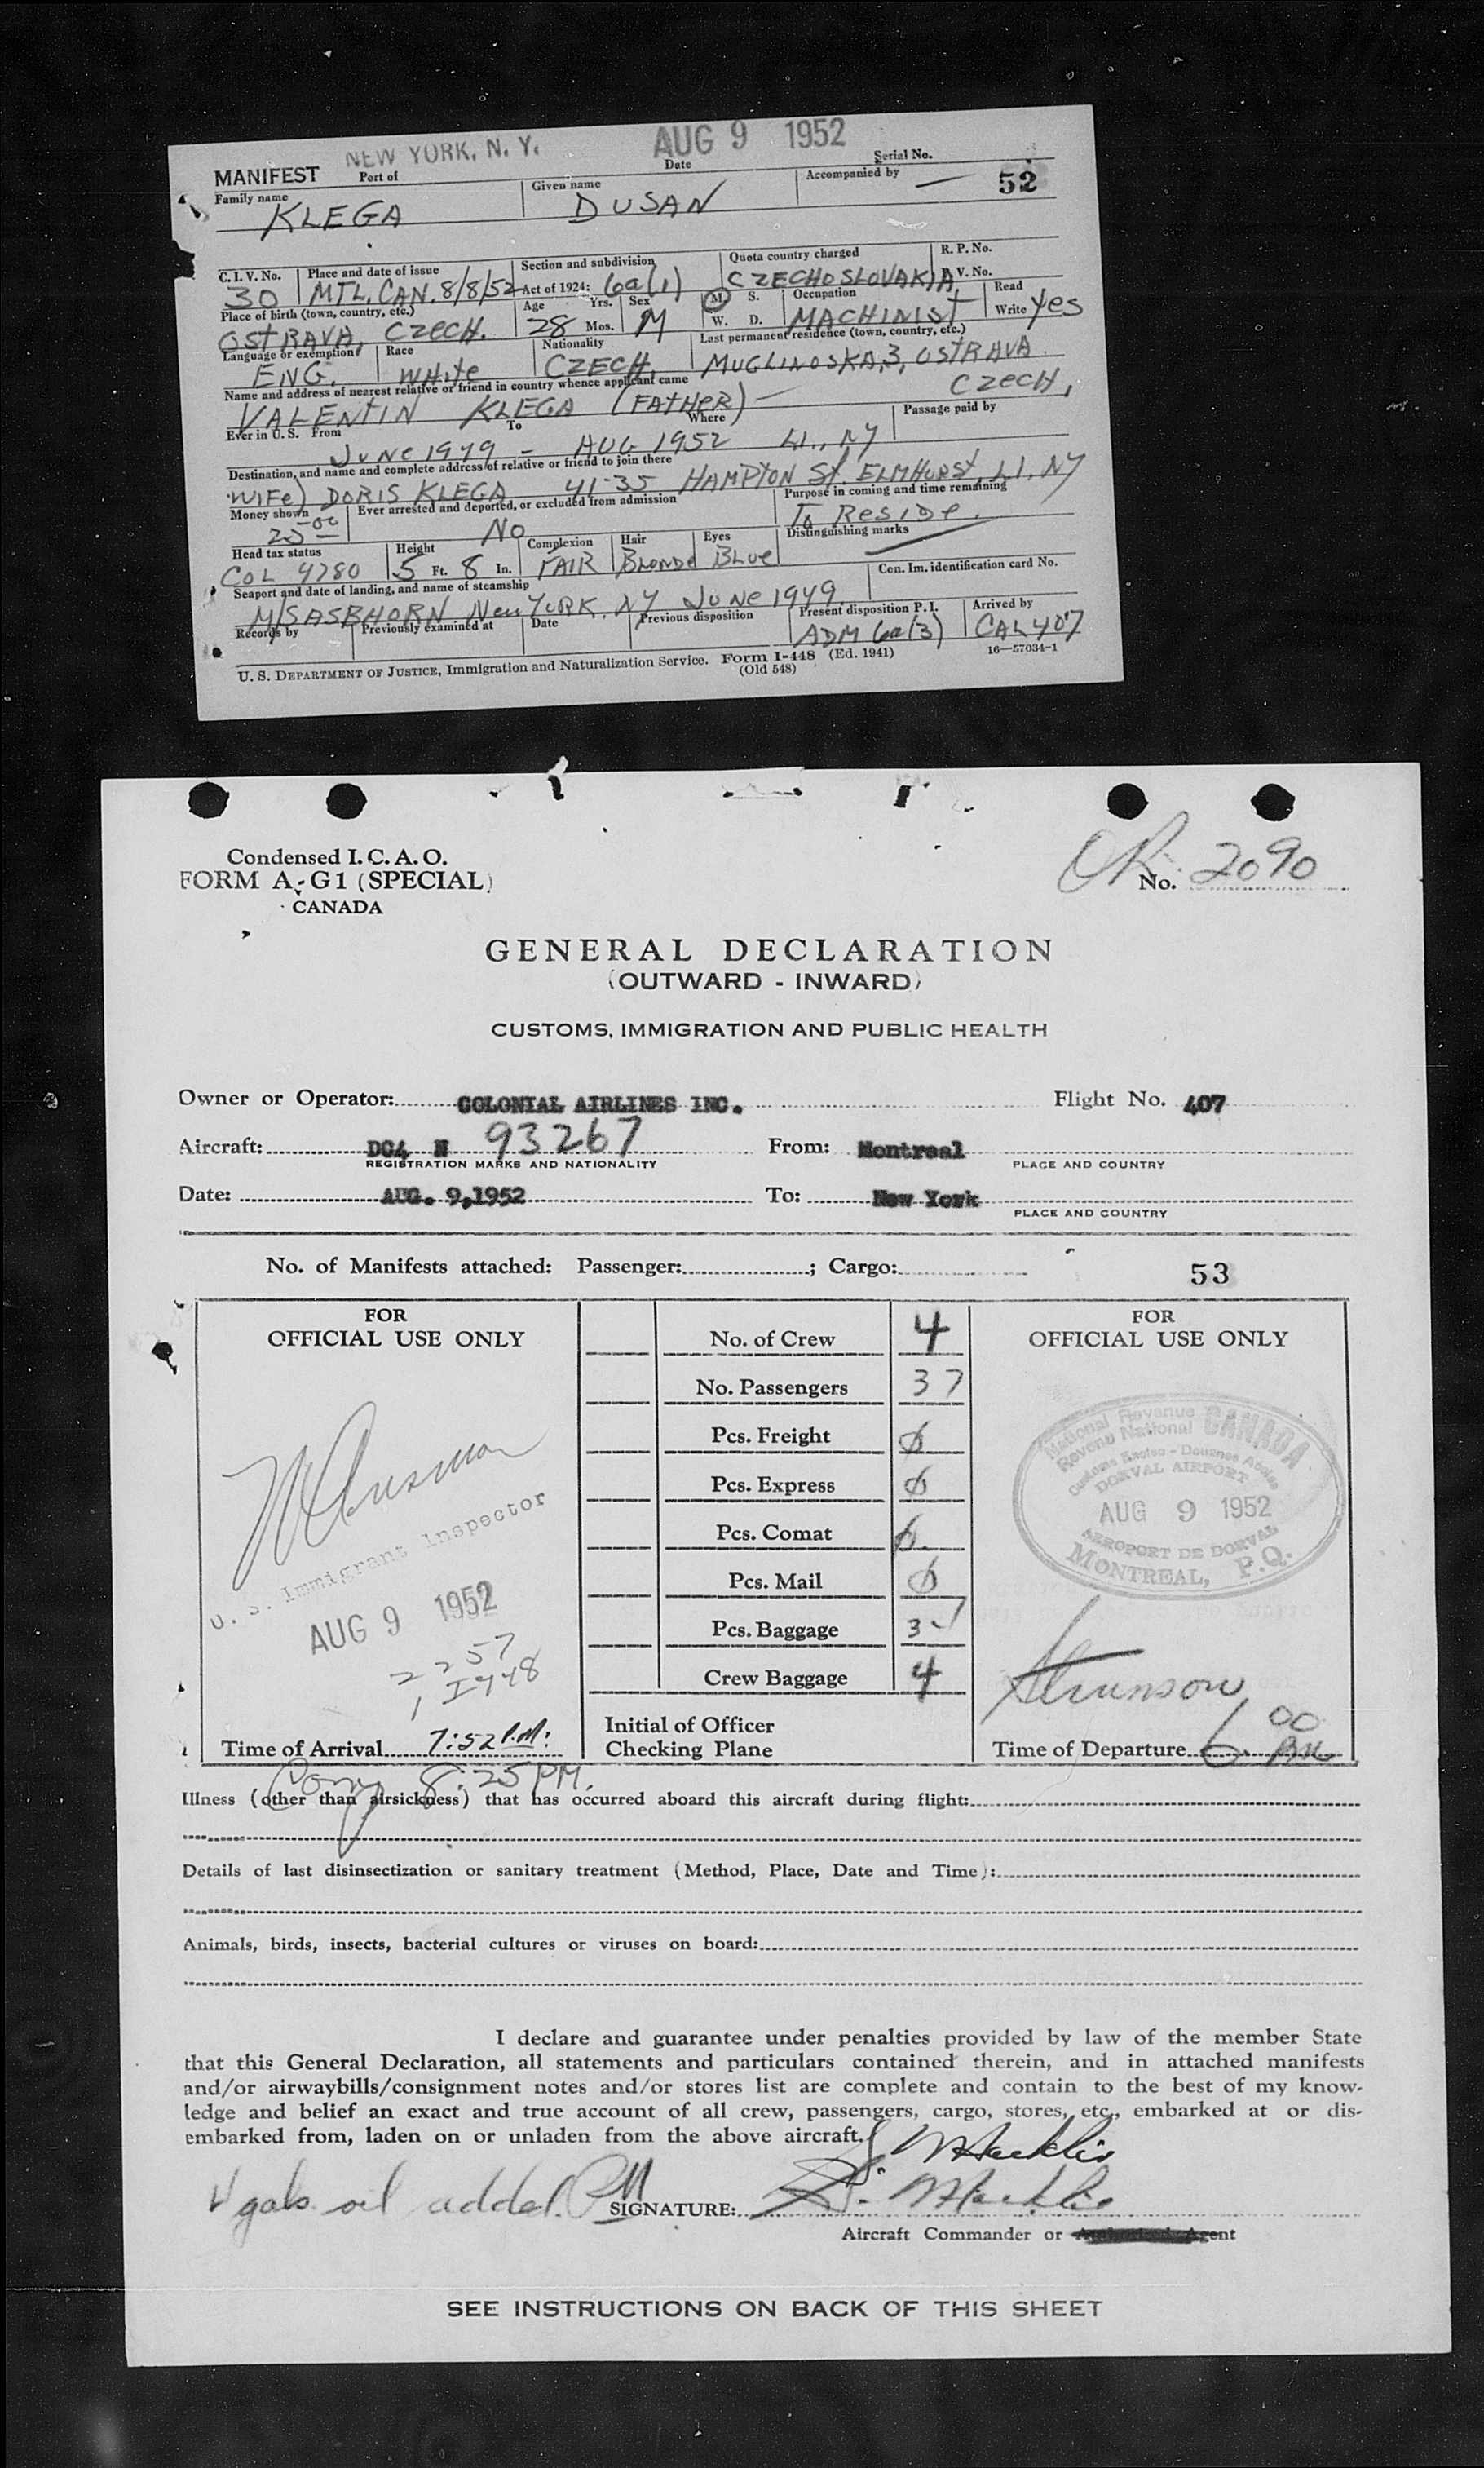 NEW YORK, N. Y. AUG 9 1952
MANIFEST Port of Date Serial No.
Family name Given name Accompanied by — 52
KLEGA DUSAN
C. I. V. No. Place and date of issue Section and subdivision Quota country charged R. P. No.
30 MTL, CAN. 8/8/52 Act of 1924: 6a(1) CZECHOSLOVAKIA V. No.
Place of birth (town, country, etc.) Age Yrs. Sex M. S. Occupation Read
OSTRAVA, CZECH. 28 Mos. M W. D. MACHINIST Write Yes
Language or exemption Race Nationality Last permanent residence (town, country, etc.)
ENG. White CZECH. MUGLINOSKA, 3, OSTRAVA
Name and address of nearest relative or friend in country whence applicant came CZECH,
VALENTIN KLEGA (FATHER) —
Ever in U. S. From To Where Passage paid by
JUNE 1949 - AUG 1952 LI., NY
Destination, and name and complete address of relative or friend to join there
(WIFE) DORIS KLEGA 41-35 HAMPTON St. ELMHURST, LI, NY
Money shown Ever arrested and deported, or excluded from admission Purpose in coming and time remaining
25 00 NO To Reside.
Head tax status Height Complexion Hair Eyes Distinguishing marks
COL 4280 5 Ft. 8 In. FAIR Blonde Blue —
Seaport and date of landing, and name of steamship Can. Im. identification card No.
M/S ASBHORN New YORK, NY JUNE 1949
Records by Previously examined at Date Previous disposition Present disposition P. I. Arrived by
ADM 6a(3) CAL 407
U. S. DEPARTMENT OF JUSTICE, Immigration and Naturalization Service. Form I-448 (Ed. 1941) 16—57034-1
(Old 548)
Condensed I. C. A. O.
FORM A-G1 (SPECIAL)
CANADA
OK No. 2090
GENERAL DECLARATION
(OUTWARD - INWARD)
CUSTOMS, IMMIGRATION AND PUBLIC HEALTH
Owner or Operator: COLONIAL AIRLINES INC. Flight No. 407
Aircraft: DC4 N 93267 From: Montreal
REGISTRATION MARKS AND NATIONALITY PLACE AND COUNTRY
Date: AUG. 9, 1952 To: New York
PLACE AND COUNTRY
No. of Manifests attached: Passenger: ; Cargo: 53
FOR
OFFICIAL USE ONLY
U. S. Immigrant Inspector
AUG 9 1952
2257
1, I948
Time of Arrival 7:52 P.M.
No. of Crew 4
No. Passengers 37
Pcs. Freight ∅
Pcs. Express ∅
Pcs. Comat ∅
Pcs. Mail ∅
Pcs. Baggage 37
Crew Baggage 4
Initial of Officer
Checking Plane
FOR
OFFICIAL USE ONLY
National Revenue CANADA
Revenu National
Customs Excise - Douanes Accise
DORVAL AIRPORT
AUG 9 1952
AEROPORT DE DORVAL
MONTREAL, P.Q.
Time of Departure 6 00 PM
8:25 PM.
Illness (other than airsickness) that has occurred aboard this aircraft during flight:
Details of last disinsectization or sanitary treatment (Method, Place, Date and Time):
Animals, birds, insects, bacterial cultures or viruses on board:
I declare and guarantee under penalties provided by law of the member State
that this General Declaration, all statements and particulars contained therein, and in attached manifests
and/or airwaybills/consignment notes and/or stores list are complete and contain to the best of my know-
ledge and belief an exact and true account of all crew, passengers, cargo, stores, etc., embarked at or dis-
embarked from, laden on or unladen from the above aircraft.
4 gals oil added. SIGNATURE:
Aircraft Commander or Agent
SEE INSTRUCTIONS ON BACK OF THIS SHEET